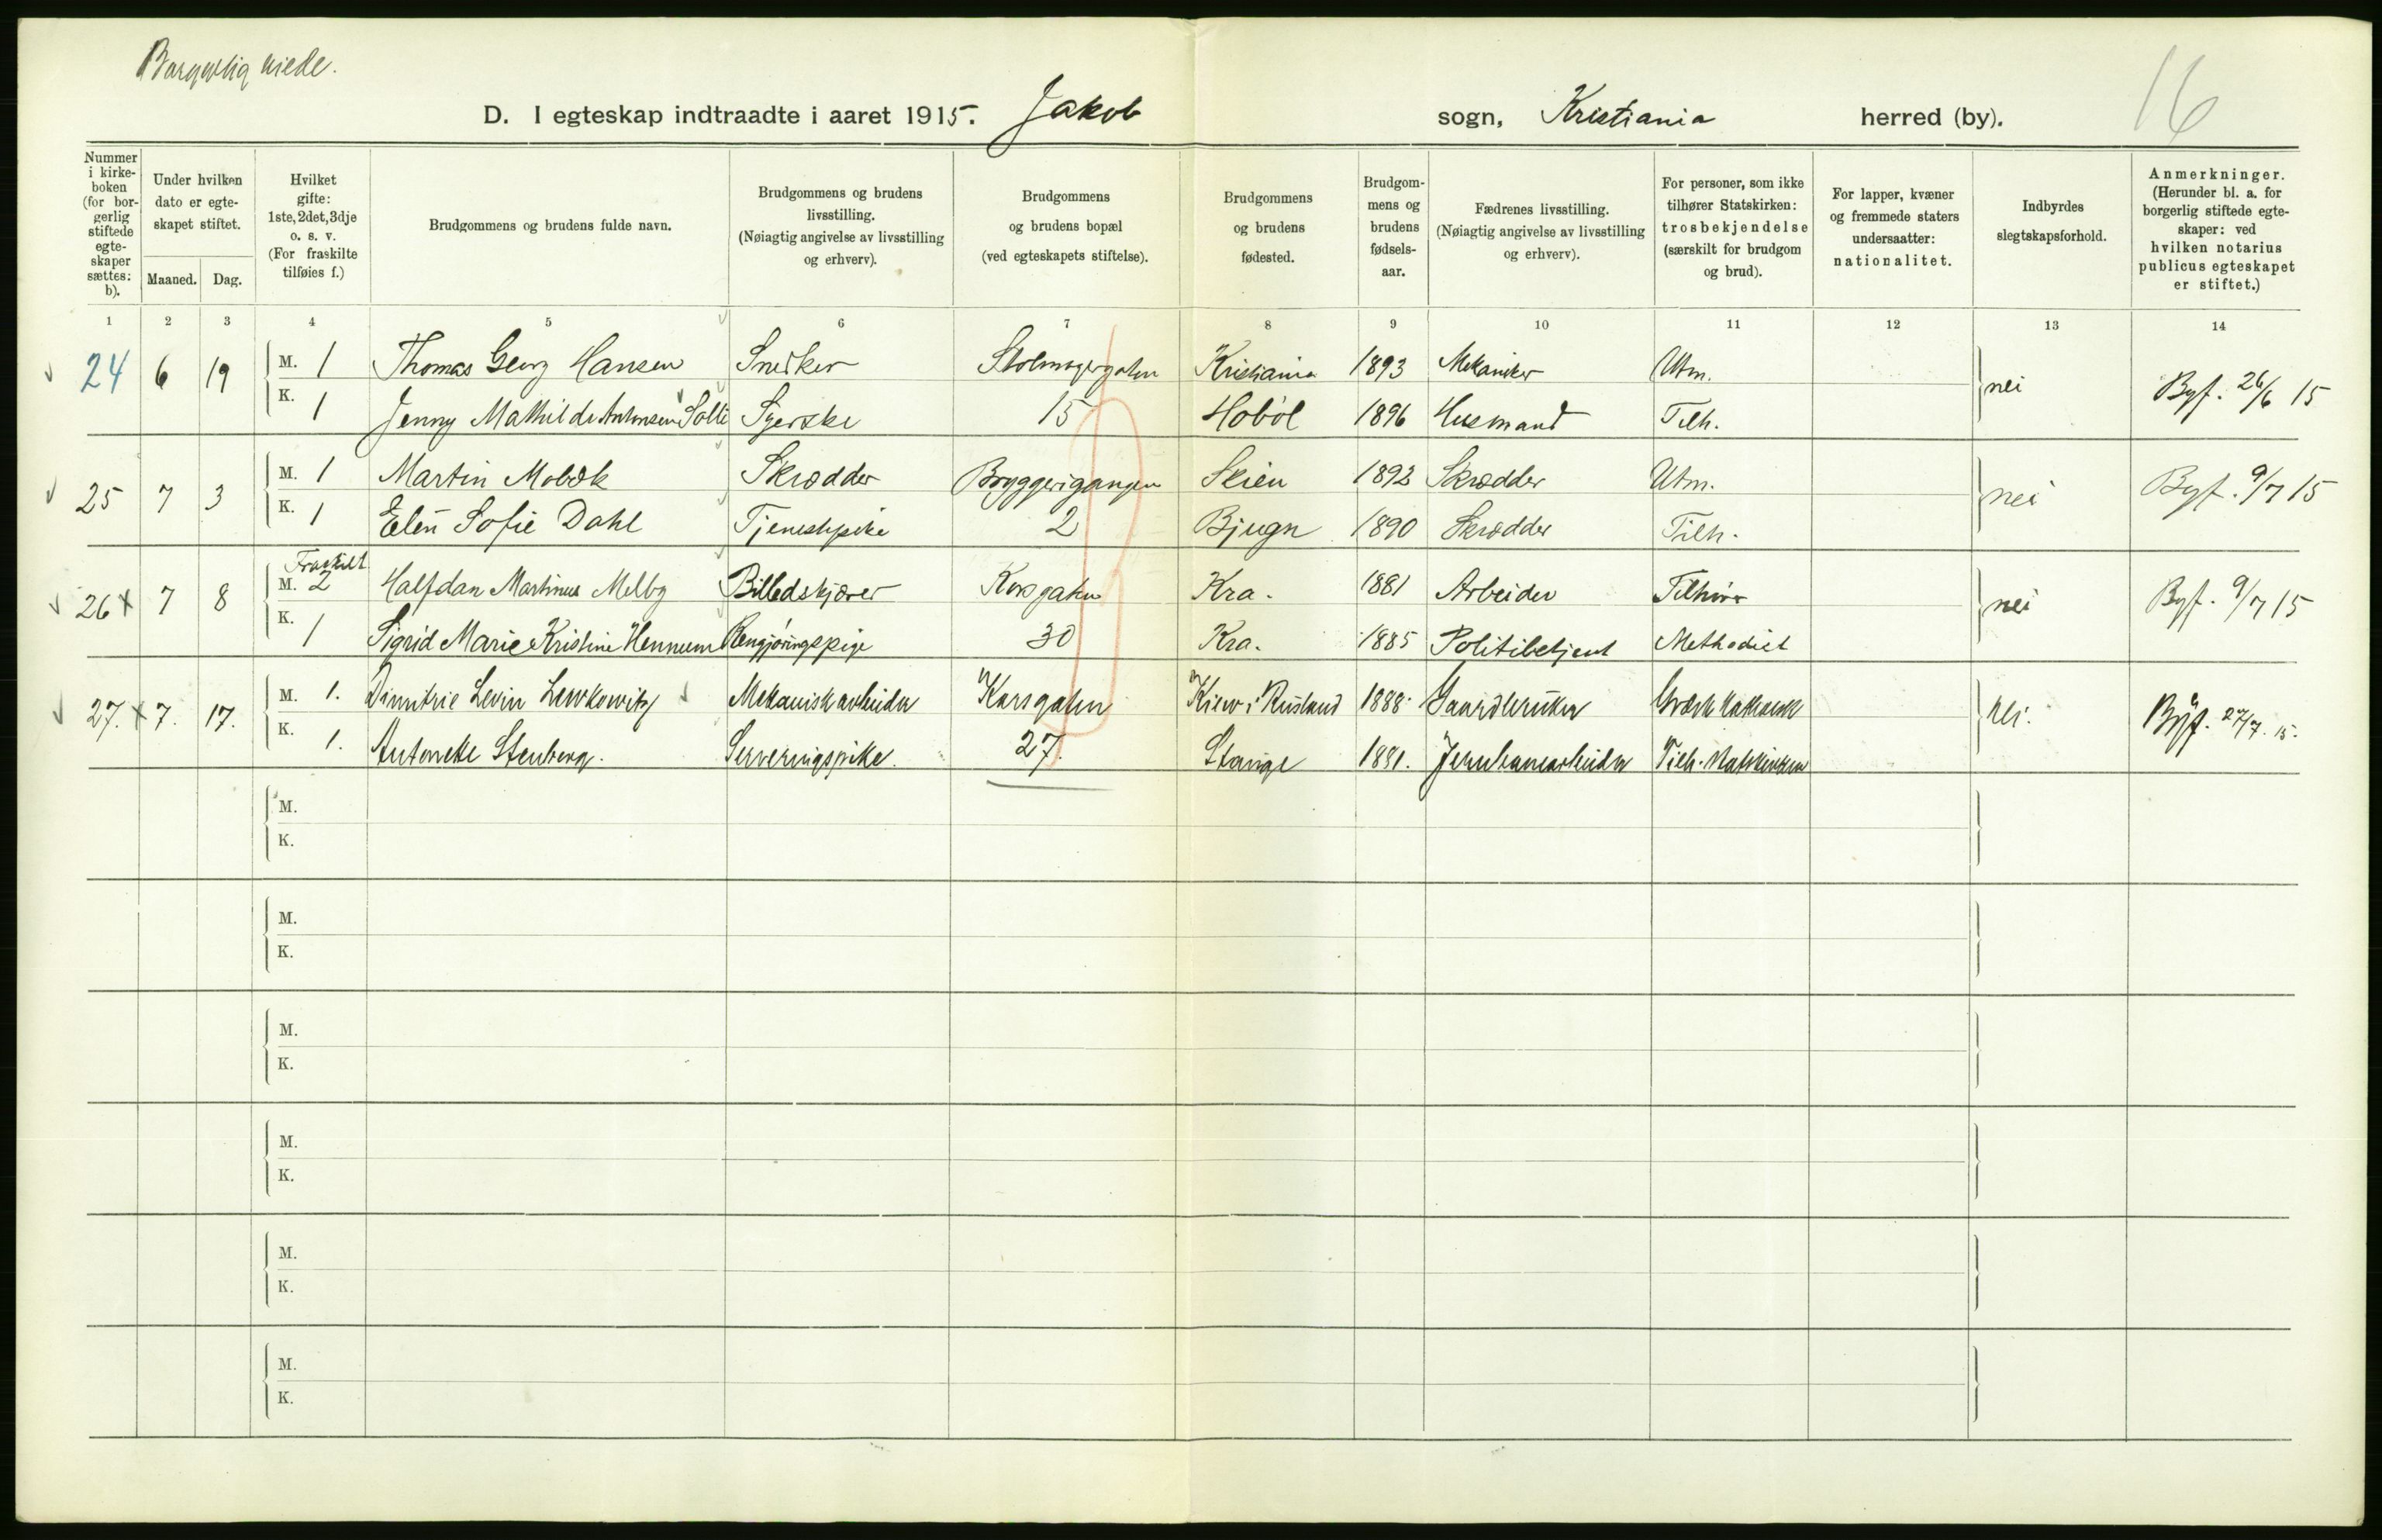 Borgerlig viede.
16
D. I egteskap indtraadte i aaret 1915. Jakob sogn, Kristiania herred (by).
Nummer i kirkeboken (for borgerlig stiftede egteskaper sættes: b).
Under hvilken dato er egteskapet stiftet.
Maaned. Dag.
Hvilket gifte: 1ste, 2det, 3dje o. s. v. (For fraskilte tilføies f.)
Brudgommens og brudens fulde navn.
Brudgommens og brudens livsstilling. (Nøiagtig angivelse av livsstilling og erhverv).
Brudgommens og brudens bopæl (ved egteskapets stiftelse).
Brudgommens og brudens fødested.
Brudgommens og brudens fødselsaar.
Fædrenes livsstilling. (Nøiagtig angivelse av livsstilling og erhverv).
For personer, som ikke tilhører Statskirken: trosbekjendelse (særskilt for brudgom og brud).
For lapper, kvæner og fremmede staters undersaatter: nationalitet.
Indbyrdes slegtskapsforhold.
Anmerkninger. (Herunder bl. a. for borgerlig stiftede egteskaper: ved hvilken notarius publicus egteskapet er stiftet.)
1 2 3 4 5 6 7 8 9 10 11 12 13 14
24 6 19 M. 1 Thomas Georg Hansen Snedker Kristiania 1893 Mekaniker Utm. nei Byf. 26/6 15
K. 1 Jenny Mathilde Antonsen Solli Syerske 15 Hobøl 1896 Husmand Tilh.
25 7 3 M. 1 Martin Mobæk Skrædder Bryggerigangen Skien 1892 Skrædder Utm. nei Byf. 9/7 15
K. 1 Elen Sofie Dahl Tjenestepike 2 Bjugn 1890 Skrædder Tilh.
Fraskilt
26 x 7 8 M. 2 Halfdan Martinus Melby Billedskjærer Korsgaten Kra. 1881 Arbeider Tilhører nei Byf. 9/7 15
K. 1 Sigrid Marie Kristine Hennum Rengjøringspige 30 Kra. 1885 Politibetjent Methodist
27. x 7. 17. M. 1. Dimitrie Levin Lewkowitz Mekanisk arbeider Korsgaten Kiew i Rusland 1888. Gaardbruker Græsk katholsk nei. Byf. 27/7. 15.
K. 1. Antonette Stenberg. Serveringspike. 27. Stange 1891. Jernbanearbeider Tilh. Statskirken
M.
K.
M.
K.
M.
K.
M.
K.
M.
K.
M.
K.